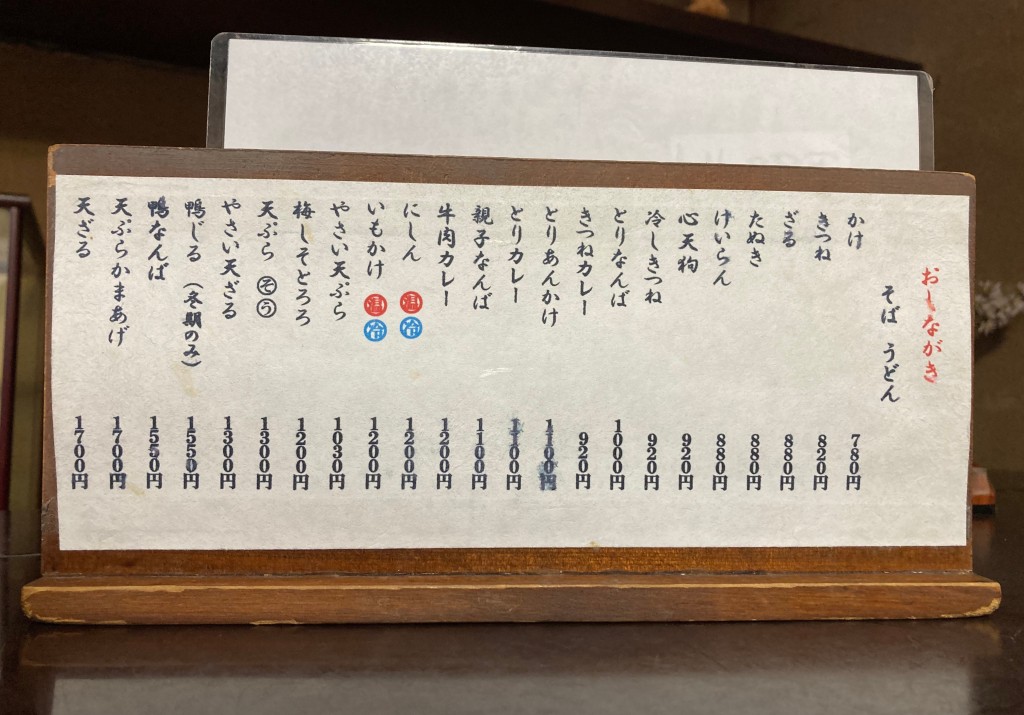 おしながき
そば うどん
かけ 780円
きつね 820円
ざる 880円
たぬき 880円
けいらん 880円
心天狗 920円
冷しきつね 920円
とりなんば 1000円
きつねカレー 920円
とりあんかけ 1100円
とりカレー 1100円
親子なんば 1100円
牛肉カレー 1200円
にしん 温 冷 1200円
いもかけ 温 冷 1200円
やさい天ぷら 1030円
梅しそとろろ 1200円
天ぷら そう 1300円
やさい天ざる 1300円
鴨じる (冬期のみ) 1550円
鴨なんば 1550円
天ぷらかまあげ 1700円
天ざる 1700円